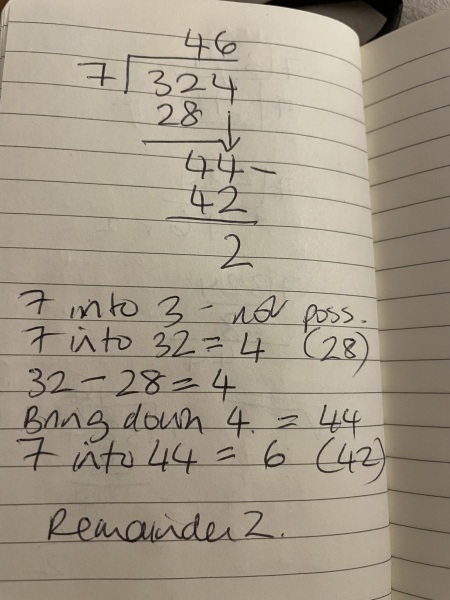 46
7 324
28
44 -
42
2
7 into 3 - not poss.
7 into 32 = 4 (28)
32 - 28 = 4
Bring down 4. = 44
7 into 44 = 6 (42)
Remainder 2.